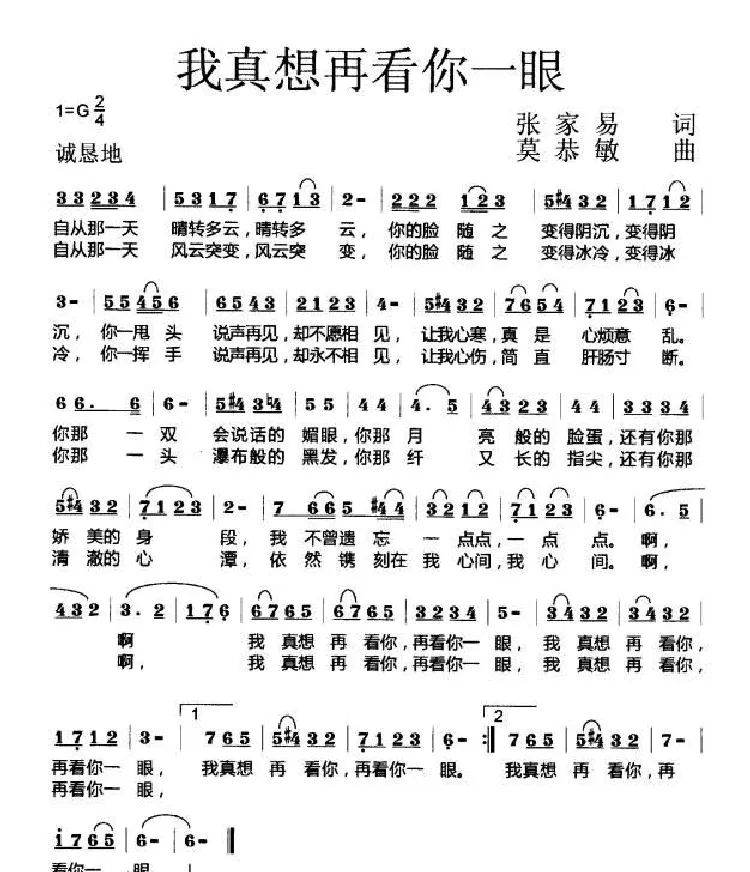 我真想再看你一眼
1=G 2/4
张家易 词
诚恳地
莫恭敏 曲
3 3 2 3 4 | 5 3 1 7 | 6 7 1 3 | 2 - | 2 2 2 1 2 3 | 5 #4 3 2 | 1 7 1 2 |
自从那一天 晴转多云,晴转多 云, 你的脸 随 之 变得阴沉,变得阴
自从那一天 风云突变,风云突 变, 你的脸 随 之 变得冰冷,变得冰
3 - | 5 5 4 5 6 | 6 5 4 3 | 2 1 2 3 | 4 - | 5 #4 3 2 | 7 6 5 4 | 7 1 2 3 | 6 - |
沉, 你一甩 头 说声再见,却不愿相 见, 让我心寒,真 是 心烦意 乱。
冷, 你一挥 手 说声再见,却永不相 见, 让我心伤,简 直 肝肠寸 断。
6 6 . 6 | 6 - | 5 #4 3 ♮4 | 5 5 | 4 4 | 4 . 5 | 4 3 2 3 | 4 4 | 3 3 3 4 |
你那 一 双 会说话的 媚眼,你那 月 亮 般的 脸蛋,还有你那
你那 一 头 瀑布般的 黑发,你那 纤 又 长的 指尖,还有你那
5 #4 3 2 | 7 1 2 3 | 2 - | 7 6 6 5 | 5 #4 4 | 3 2 1 2 | 7 1 2 3 | 6 - | 6 . 5 |
娇 美的 身 段, 我 不曾遗 忘 一 点点,一 点 点。 啊,
清 澈的 心 潭, 依 然 镌 刻在 我 心间,我 心 间。 啊,
4 3 2 | 3 . 2 | 1 7 6 | 6 7 6 5 | 6 7 6 5 | 3 2 3 4 | 5 - | 3 4 3 2 | 3 4 3 2 |
啊 我 真想 再 看你,再看你一 眼, 我 真想 再 看你,
啊, 我 真想 再 看你,再看你一 眼, 我 真想 再 看你,
1
2
1 7 1 2 | 3 - | 7 6 5 | 5 #4 3 2 | 7 1 2 3 | 6 - :| 7 6 5 | 5 #4 3 2 | 7 - |
再看你一 眼, 我真想 再 看你,再看你一 眼。 我真想 再 看你,再
再看你一 眼,
1 7 6 5 | 6 - | 6 - ‖
看你一 眼 !